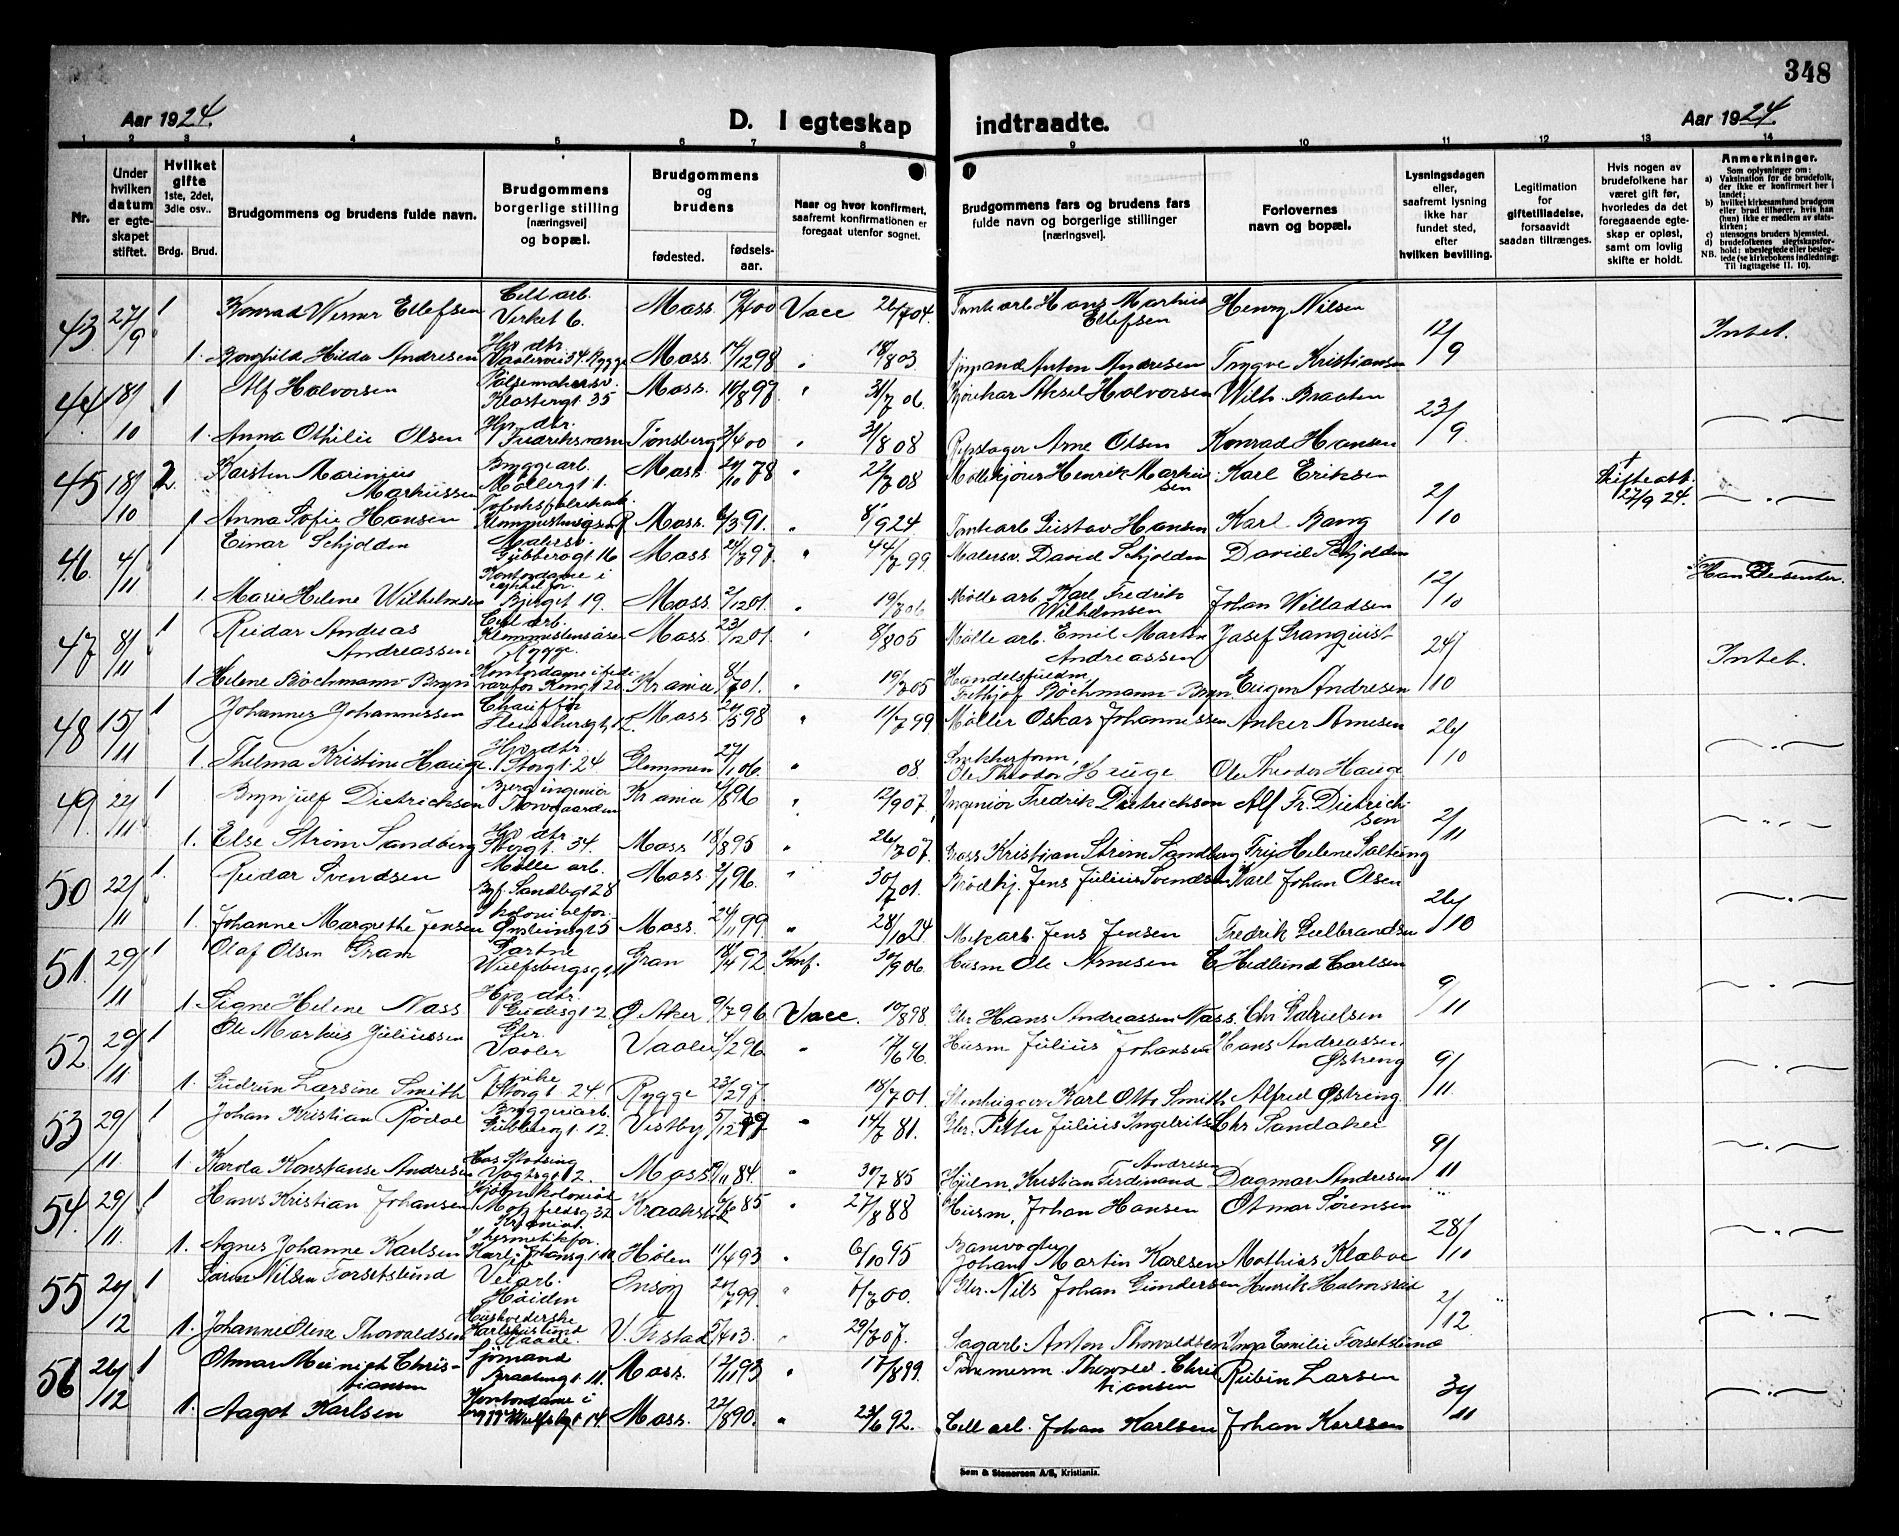 348
Aar 1924.
D. I egteskap indtraadte.
Aar 1924.
1 2 3 4 5 6 7 8 9 10 11 12 13 14
Nr.
Under hvilken datum er egteskapet stiftet.
Hvilket gifte 1ste, 2det, 3die osv.
Brdg. Brud.
Brudgommens og brudens fulde navn.
Brudgommens borgerlige stilling (næringsvei) og bopæl.
Brudgommens og brudens
fødested. fødselsaar.
Naar og hvor konfirmert, saafremt konfirmationen er foregaat utenfor sognet.
Brudgommens fars og brudens fars fulde navn og borgerlige stillinger (næringsvei).
Forlovernes navn og bopæl.
Lysningsdagen eller, saafremt lysning ikke har fundet sted, efter hvilken bevilling.
Legitimation for giftetilladelse, forsaavidt saadan tiltrænges.
Hvis nogen av brudefolkene har været gift før, hvorledes da det foregaaende egteskap er opløst, samt om lovlig skifte er holdt.
Anmerkninger.
Som oplysninger om:
a) Vaksination før de brudefolk, der ikke er konfirmert her i landet;
b) hvilket kirkesamfund brudgom eller brud tilhører, hvis han (hun) ikke er medlem av statskirken;
c) utensogns bruders hjemsted.
d) brudefolkenes slegtskapsforhold: ubeslegtede eller beslegtede (se kirkebokens indledning:
NB. Til iagttagelse II. 10).
43 27/9 1 Konrad Werner Ellefsen Cell arb. Verket 6. Moss Vacc 26/7 04. Tomtearb Hans Markus Ellefsen Henry Nilsen 12/9 Intet.
1. Borghild Hilda Andresen Hp dtr. Vaalervei 34. Rygge Moss. 17/12 98 18/8 03 Anton Andresen Trygve Kristiansen
44 18/10 1 Alf Halvorsen Pølsemakersv. Klostergt 35 Moss. 10/8 97 31/7 06 Aksel Halvorsen Wilh. Braaten 23/9
1. Anna Othilie Olsen Hp. dtr. Fredriksværn Tønsberg 2/4 00 31/8 08 Repslager Arne Olsen Konrad Hansen
45 18/10 2. Karsten Marinius Markussen Byggearb. Møllergt 1. Moss. 24/10 78 22/7 08 Møllekjører Henrik Markussen Karl Eriksen 2/10 Skifteatt. 27/9 24.
1 Anna Sofie Hansen Moss 6/3 91. 8/9 24 Tomtearb Gustav Hansen Karl Bang
46. 4/11 1 Einar Schjolden Malersv. Gudbergt 16 Moss 24/7 97 David Schjolden David Schjolden 12/10 Han Dissenter.
1. Marie Helene Wilhelmsen Kontordame i Bjerget 19. Moss. 2/12 01. 19/7 06 Mølle arb. Karl Fredrik Wilhelmsen Johan Willadsen
47 8/11 1 Reidar Andreas Andreassen Cell arb. Rygge. Moss 23/12 01. 8/8 05 Mølle arb. Emil Martin Andreassen Josef Granquist 24/10 Intet.
1 Helene Bøchmann-Bryn Kontordame Kr ania 8/7 01. 19/7 05 Handelsfuldm. Fritjof Bøchmann-Bryn Eugen Andresen
48 15/11 1 Johannes Johannessen Chauffør Moss. 24/5 98 11/7 99 Møller Oskar Johannessen Anker Arnesen 26/10
1. Thelma Kristine Hauge. Hp. dtr. Storgt. 24 Glemmen 27/1 06. 08 Ole Theodor Hauge Ole Theodor Hauge
49. 22/11 1 Brynjulf Dietrichson Bergingeniør Kr ania 12/9 07 Ingeniør Fredrik Dietrichson Alf Fr. Dietrichson 2/11
1. Else Strøm Sandberg Hp dtr. Storgt. 34. Moss 18/8 95 26/7 07. Kristian Strøm Sandberg
50 22/11 1. Reidar Svendsen Mølle arb. Moss. 2/1 96. 30/7 01. Brødkj. Jens Julius Svendsen Karl Johan Olsen 26/10
1. Johanne Margrethe Jensen I kolonialfor. Moss. 24/11 99 28/10 24 Mek arb. Jens Jensen Fredrik Gulbrandsen
51. 29/11 1 Olaf Olsen Gram Gartner Wulfsbergsgt. Gran 18/4 92 Konf. 30/9 06. Husm Ole Arnesen C Hedlund Carlsen 9/11
1. Signe Helene Nass Hp dtr. Gudesgt. 2 Ø Aker 9/7 96 Vacc. 10/8 98 Gbr Hans Andreassen Nass. Chr Gabrielsen
52. 29/11 1 Ole Markus Juliussen Gbr. Vaaler Vaaler 4/2 96 Husm Julius Johansen Hans Andreassen Østreng 9/11
1. Gudrun Larsine Smith Storgt. 24. Rygge 23/2 97. 18/7 01. Stenhugger Karl Otto Smith Alfred Østreng.
53 29/11 1 Johan Kristian Rødal Bryggeriarb. Gudbergt. 12. Vestby 5/12 79 14/7 81. Gbr. Petter Julius Ingebrigtsen Chr Sandaker 9/11
1. Karda Konstanse Andresen Vogtsgt 2. Moss 9/11 84. 30/7 85 Kristian Ferdinand Andresen Dagmar Andresen
54. 29/11 1 Hans Kristian Johansen Kraakstad 6/6 85 27/8 88 Husm, Johan Hansen Otmar Sørensen 28/10
1. Agnes Johanne Karlsen I hermetikfor. Hølen 11/4 93 6/10 95 Banevogter Johan Martin Karlsen Mathias Klæboe
55 24/12 1 Søren Nilsen Forsetslund Veiarb. Høiden Onsøy 24/7 99 Gbr. Nils Johan Gundersen Henrik Halvorsrød 2/12
1. Johanne Oline Thorvaldsen Husholderske V. Fistad 5/4 03. 29/7 07. Sagarb. Anton Thorvaldsen Inga Emilie Forsetslund
56 26/12 1 Otmar Meinich Christiansen Sjømand Moss. 12/11 93 17/8 99. Tømmerm. Thorvald Christiansen Rubin Larsen 30/11
1. Aagot Karlsen Kontordame i Moss. 22/8 90. 23/6 92. Cell arb. Johan Karlsen Johan Karlsen
Sem & Stenersen A/S, Kristiania.